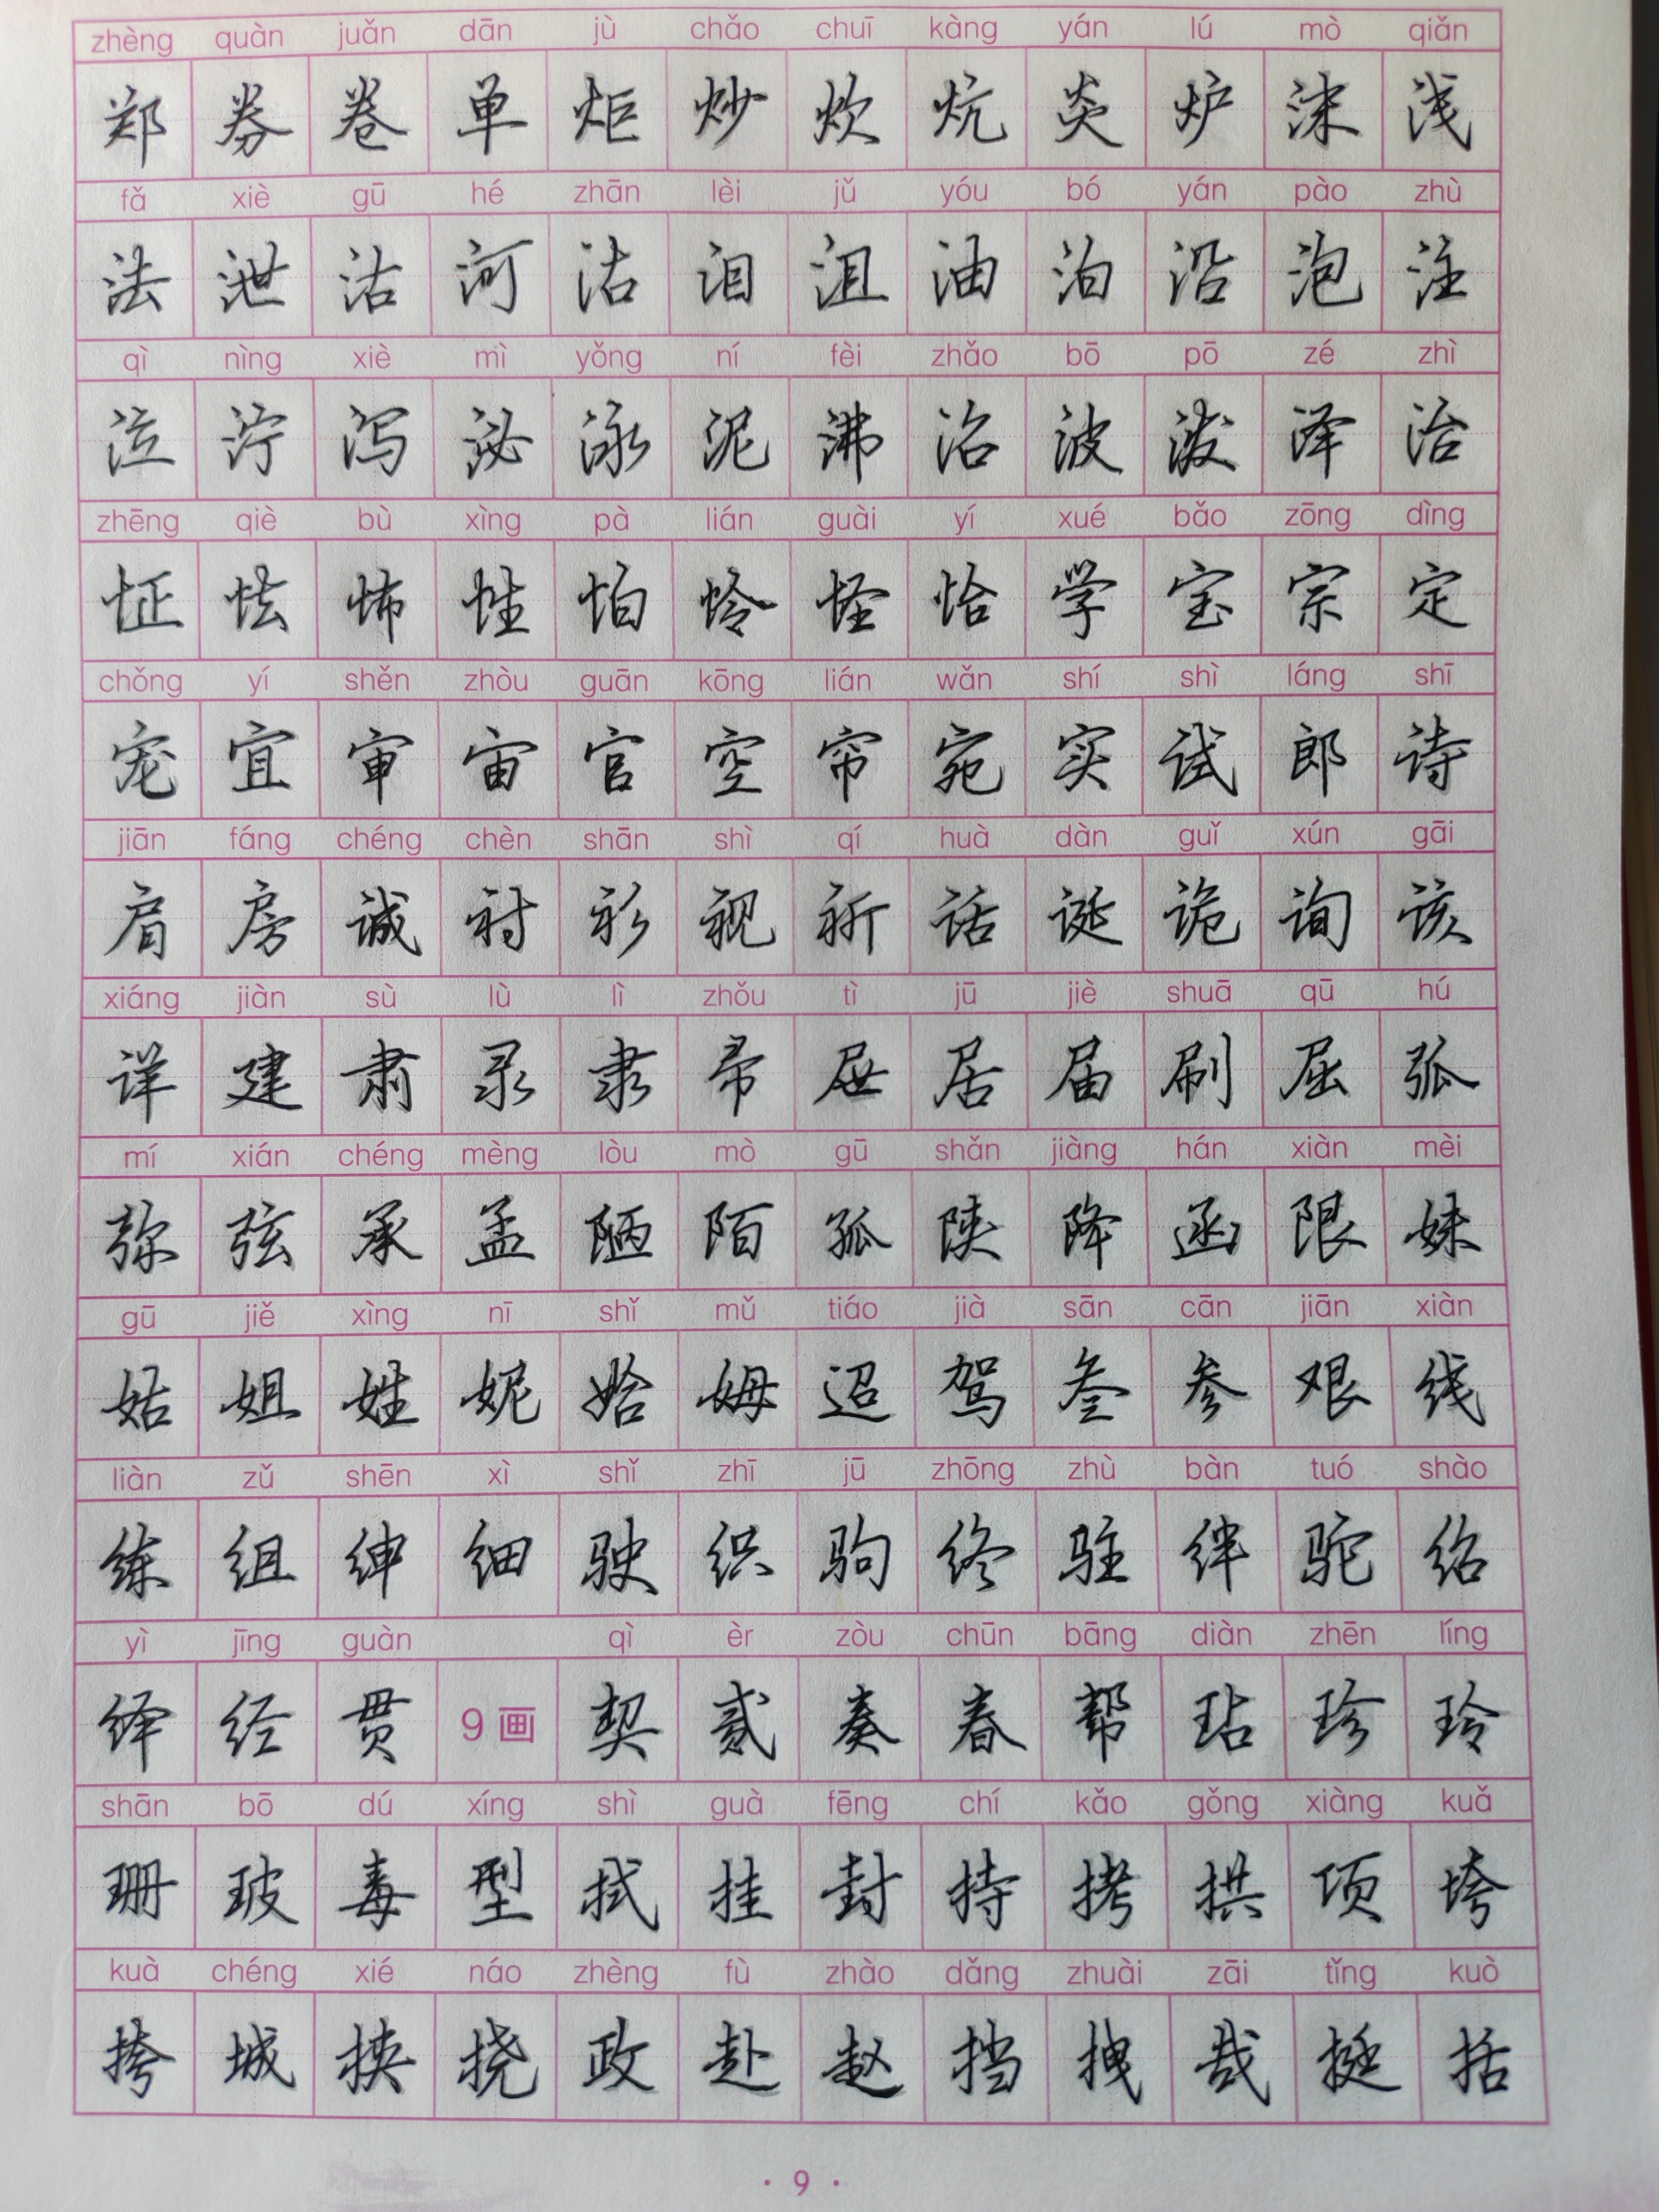 zhèng quàn juǎn dān jù chǎo chuī kàng yán lú mò qiǎn
郑 券 卷 单 炬 炒 炊 炕 炎 炉 沫 浅
fǎ xiè gū hé zhān lèi jǔ yóu bó yán pào zhù
法 泄 沽 河 沾 泪 沮 油 泊 沿 泡 注
qì nìng xiè mì yǒng ní fèi zhǎo bō pō zé zhì
泣 泞 泻 泌 泳 泥 沸 沼 波 泼 泽 治
zhēng qiè bù xìng pà lián guài yí xué bǎo zōng dìng
怔 怯 怖 性 怕 怜 怪 怡 学 宝 宗 定
chǒng yí shěn zhòu guān kōng lián wǎn shí shì láng shī
宠 宜 审 宙 官 空 帘 宛 实 试 郎 诗
jiān fáng chéng chèn shān shì qí huà dàn guǐ xún gāi
肩 房 诚 衬 衫 视 祈 话 诞 诡 询 该
xiáng jiàn sù lù lì zhǒu tì jū jiè shuā qū hú
详 建 肃 录 隶 帚 屉 居 届 刷 屈 弧
mí xián chéng mèng lòu mò gū shǎn jiàng hán xiàn mèi
弥 弦 承 孟 陋 陌 孤 陕 降 函 限 妹
gū jiě xìng nī shǐ mǔ tiáo jià sān cān jiān xiàn
姑 姐 姓 妮 始 姆 迢 驾 叁 参 艰 线
liàn zǔ shēn xì shǐ zhī jū zhōng zhù bàn tuó shào
练 组 绅 细 驶 织 驹 终 驻 绊 驼 绍
yì jīng guàn qì èr zòu chūn bāng diàn zhēn líng
绎 经 贯 9画 契 贰 奏 春 帮 玷 珍 玲
shān bō dú xíng shì guà fēng chí kǎo gǒng xiàng kuǎ
珊 玻 毒 型 拭 挂 封 持 拷 拱 项 垮
kuà chéng xié náo zhèng fù zhào dǎng zhuài zāi tǐng kuò
挎 城 挟 挠 政 赴 赵 挡 拽 哉 挺 括
· 9 ·